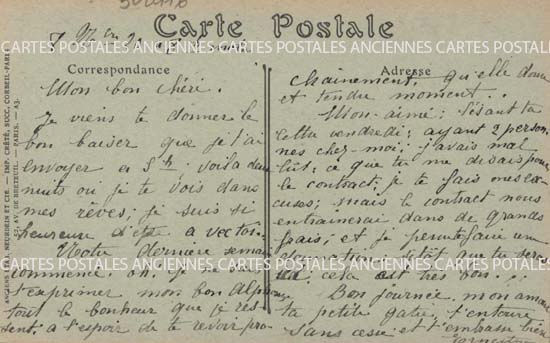 Carte Postale
CARTES POSTALES ANCIENNES CARTES POSTALES ANCIENNES CARTES POSTALES
Correspondance
Mon bon chéri.
Je viens te donner le
bon baiser que je t'ai
envoyer a 5h. voila deux
nuits ou je te vois dans
mes rêves, je suis si
heureuse d'etre a
Notre dernière semaine
commence
t'exprimer mon bon Alphonse
tout le bonheur que je res-
sent. a l'espoir de te revoir pro-
Adresse
chainement, qu'elle doux
et tendre moment..
Mon aimé: lisant ta
lettre vendredi; ayant 2 person
nes chez moi; j'avais mal
lus; ce que tu me disais pour
le contract; je te fais mes ex-
cuses; mais le contract nous
entrainerai dans de grands
frais; et je
cela est très bon...
Bon journée, mon amour
ta petite gatée, t'entoure
sans cesse et t'embrasse bien
ANCIENS ETAB. NEURDEIN ET CIE. — IMP. CRÉTÉ, SUCC. CORBEIL-PARIS
52, AV. DE BRETEUIL. — PARIS. — A3.